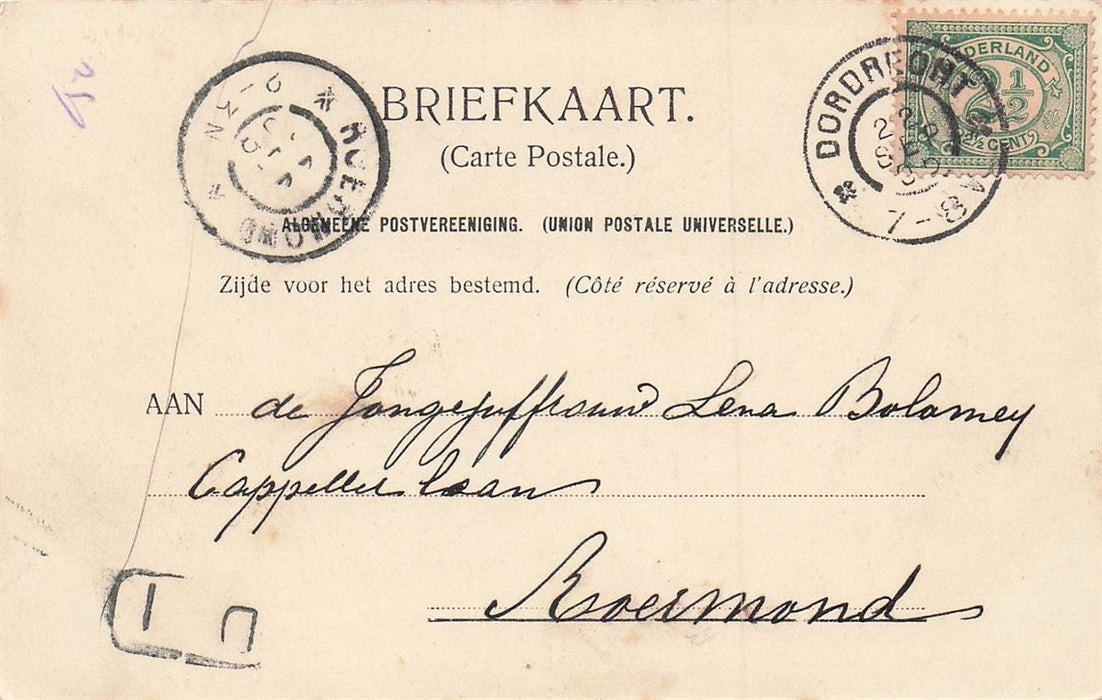 BRIEFKAART.
(Carte Postale.)
ALGEMEENE POSTVEREENIGING. (UNION POSTALE UNIVERSELLE.)
Zijde voor het adres bestemd. (Côté réservé à l'adresse.)
AAN de Jongejuffrouw Lena Bolomey
Cappellerlaan
Roermond
NEDERLAND
2½
2½ CENT
DORDRECHT
7-8
ROERMOND